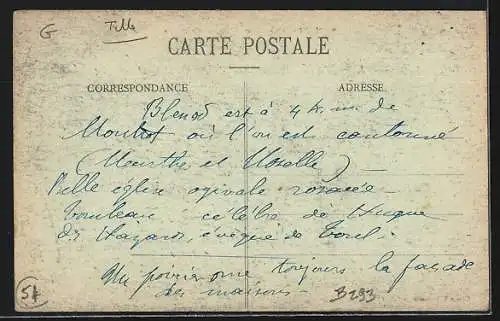 G
CARTE POSTALE
CORRESPONDANCE
ADRESSE
Blenod est à 4 k. m de
où l'on est cantonné
(Meurthe et Moselle)
Belle église ogivale rosacée
tombeau célèbre de Hugue
des Hazards, évêque de Toul.
Un poirier orne toujours la façade
des maisons
51
B293